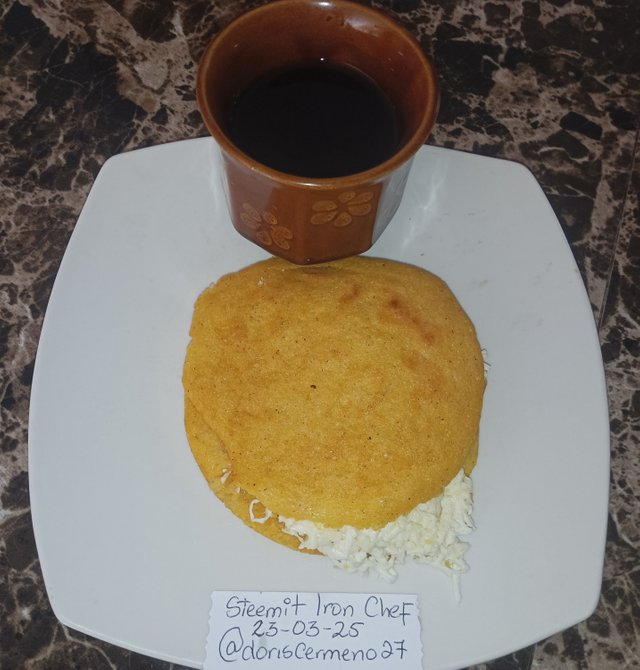 Steemit Iron Chef
23-03-25
@doriscermeno27